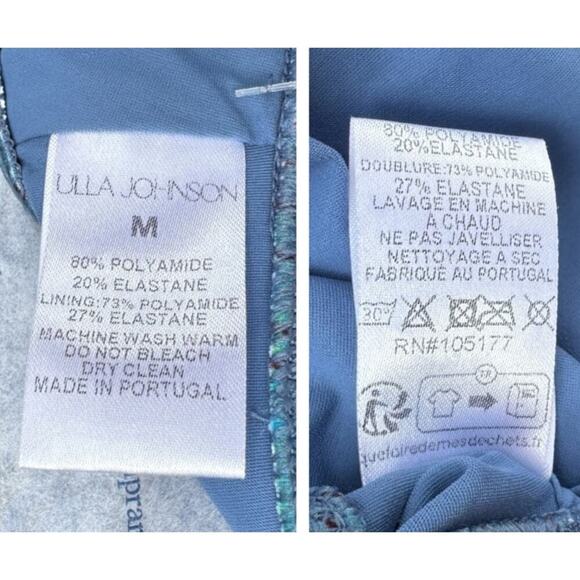 ULLA JOHNSON
M
80% POLYAMIDE
20% ELASTANE
LINING:73% POLYAMIDE
27% ELASTANE
MACHINE WASH WARM
DO NOT BLEACH
DRY CLEAN
MADE IN PORTUGAL
80% POLYAMIDE
20%ELASTANE
DOUBLURE:73% POLYAMIDE
27% ELASTANE
LAVAGE EN MACHINE
A CHAUD
NE PAS JAVELLISER
NETTOYAGE A SEC
FABRIQUÉ AU PORTUGAL
30°
RN#105177
quefairedemesdechets.fr